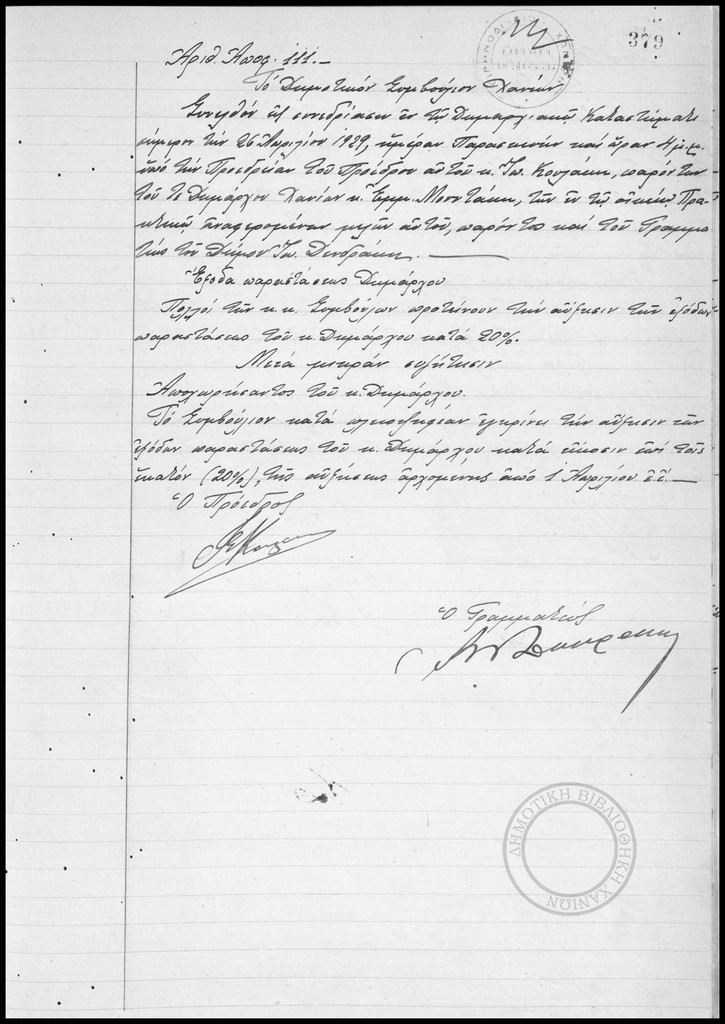 379
Ἀριθ. Ἀποφ. 111.-
Τὸ Δημοτικόν Συμβούλιον Χανίων
Συνελθὸν εἰς συνεδρίασιν ἐν τῷ Δημαρχιακῷ Καταστήματι
σήμερον τὴν 26 Ἀπριλίου 1929, ἡμέραν Παρασκευὴν καὶ ὥραν 4 μ.μ.
ὑπὸ τὴν Προεδρείαν τοῦ Προέδρου αὐτοῦ κ. Ἰω. Κουγάκη, παρόντων
τοῦ τε Δημάρχου Χανίων κ. Ἐμμ. Μουντάκη, τῶν ἐν τῷ οἰκείῳ Πρα-
κτικῷ ἀναφερομένων μελῶν αὐτοῦ, παρόντος καὶ τοῦ Γραμμα-
τέως τοῦ Δήμου Ἰω. Δενδράκη.
Ἔξοδα παραστάσεως Δημάρχου
Πολλοὶ τῶν κ.κ. Συμβούλων προτείνουν τὴν αὔξησιν τῶν ἐξόδων
παραστάσεως τοῦ κ. Δημάρχου κατά 20%.
Μετά μικράν συζήτησιν
Ἀποχωρήσαντος τοῦ κ. Δημάρχου.
Τὸ Συμβούλιον κατά πλειοψηφίαν ἐγκρίνει τὴν αὔξησιν τῶν
ἐξόδων παραστάσεως τοῦ κ. Δημάρχου κατά εἴκοσιν ἐπί τοῖς
ἑκατόν (20%), τῆς αὐξήσεως ἀρχομένης ἀπό 1 Ἀπριλίου ἐ.ἔ.-
Ὁ Πρόεδρος
Ὁ Γραμματεύς
ΔΗΜΟΤΙΚΗ ΒΙΒΛΙΟΘΗΚΗ ΧΑΝΙΩΝ